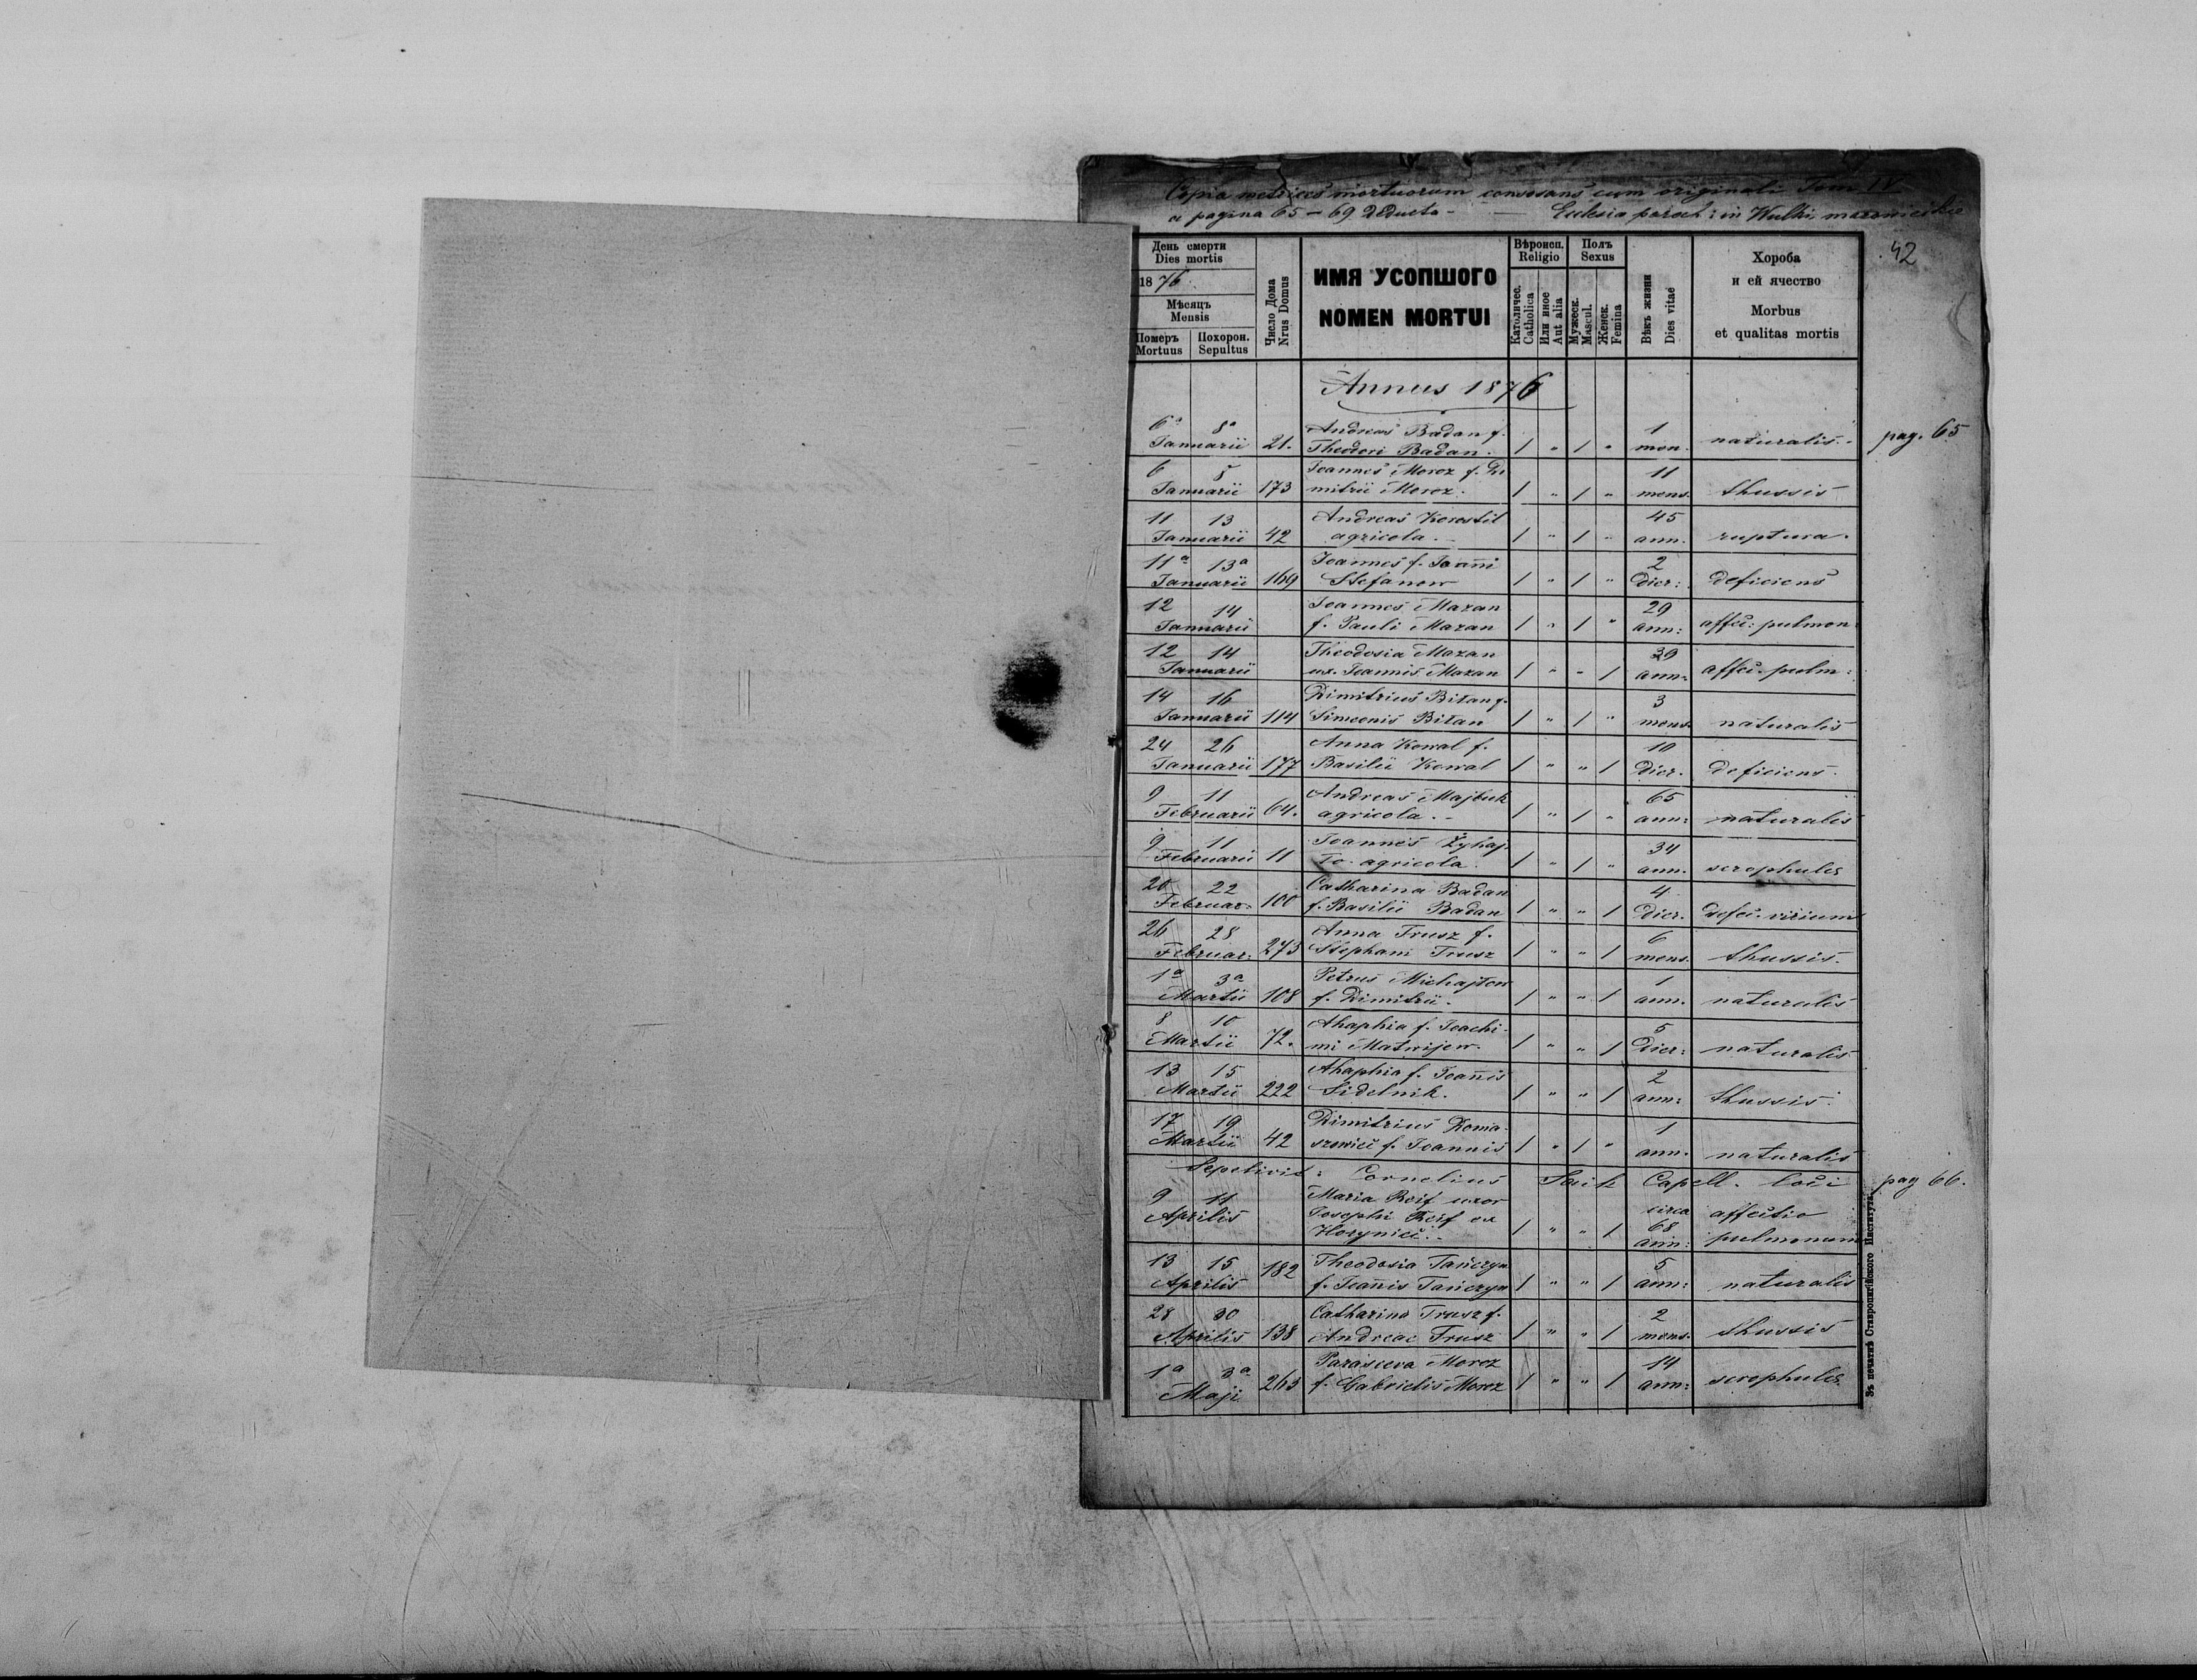 Copia metrices mortuorum consonans cum originali Tom IV
a pagina 65 - 69 deducta - Eclesia paroch: in Wulki
42
День смерти
Dies mortis
1876.
Мѣсяцъ
Mensis
Померъ Похорон.
Mortuus Sepultus
Число Дома
Nrus Domus
ИМЯ УСОПШОГО
NOMEN MORTUI
Вѣроисп.
Religio
Католичес.
Catholica
Или иное
Aut alia
Полъ
Sexus
Мужеск.
Mascul.
Женск.
Femina
Вѣкъ жизни
Dies vitae
Хороба
и ей ячество
Morbus
et qualitas mortis
Annus 1876
6a 8a Andreas Badan f. 1
Januarii 21. Theodori Badan. 1 " 1 " men. naturalis. pag. 65
6 8 Joannes Moroz f. Di 11
Januarii 173 mitrii Moroz. 1 " 1 " mens. thussis
11 13 Andreas Korostil 45
Januarii 42 agricola. - 1 " 1 " ann. ruptura.
11a 13a Joannes f. Joanni 2
Januarii 169 Stefanow 1 " 1 " dier: deficiens
12 14 Joannes Mazan 29
Januarii f. Pauli Mazan 1 " 1 " ann: affec: pulmon
12 14 Theodosia Mazan 39
Januarii ux. Joannis Mazan 1 " " 1 ann. affec. pulm:
14 16 Dimitrius Bitan f. 3
Januarii 114 Simeonis Bitan 1 " 1 " mens. naturalis
24 26 Anna Kowal f. 10
Januarii 177 Basilii Kowal 1 " " 1 dier. deficiens.
9 11 Andreas Majbuk 65
Februarii 64. agricola. - 1 " 1 " ann: naturalis
9 11 Joannes Żyhaj 34
Februarii 11 ło agricola. 1 " 1 " ann. scrophules
20 22 Catharina Badan 4
Februar. 100 f. Basilii Badan 1 " " 1 dier. defec. virium
26 28 Anna Trusz f. 6
Februar. 273 Stephani Trusz 1 " " 1 mens. thussis.
1a 3a Petrus Michajłow 1
Martii 108 f. Dimitrii. 1 " " 1 ann. naturalis
8 10 Ahaphia f. Joachi- 5
Martii 72. mi Matwijew. 1 " " 1 dier: naturalis
13 15 Ahaphia f. Joannis 2
Martii 222 Sidelnik. 1 " " 1 ann: thussis.
17 19 Dimitrius Roma- 1
Martii 42 szewicz f. Joannis 1 " 1 " ann. naturalis
Sepelivit: Cornelius Capell. loci pag 66.
9 11 Maria Reif uxor circa affectio
Aprilis Josephi Reif ex 68
Horyniec. - 1 " " 1 ann: pulmonum
13 15 182 Theodosia Tańczyn 5
Aprilis f. Joannis Tańczyn 1 " " 1 ann: naturalis
28 30 Catharina Trusz f. 2
Aprilis 138 Andreae Trusz 1 " " 1 mens. thussis
1a 3a Parasceva Moroz 14
Maji 263 f. Gabrielis Moroz 1 " " 1 ann: scrophules
Зъ печатнѣ Ставропигійского Института.